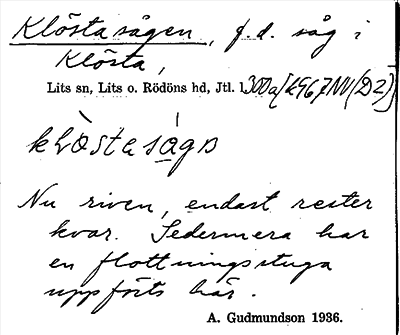 Klöstasågen, f.d. såg i
Klösta,
Lits sn, Lits o. Rödöns hd, Jtl. l.
Nu riven, endast rester
kvar. Sedermera har
en flottningsstuga
uppförts här.
A. Gudmundson 1936.